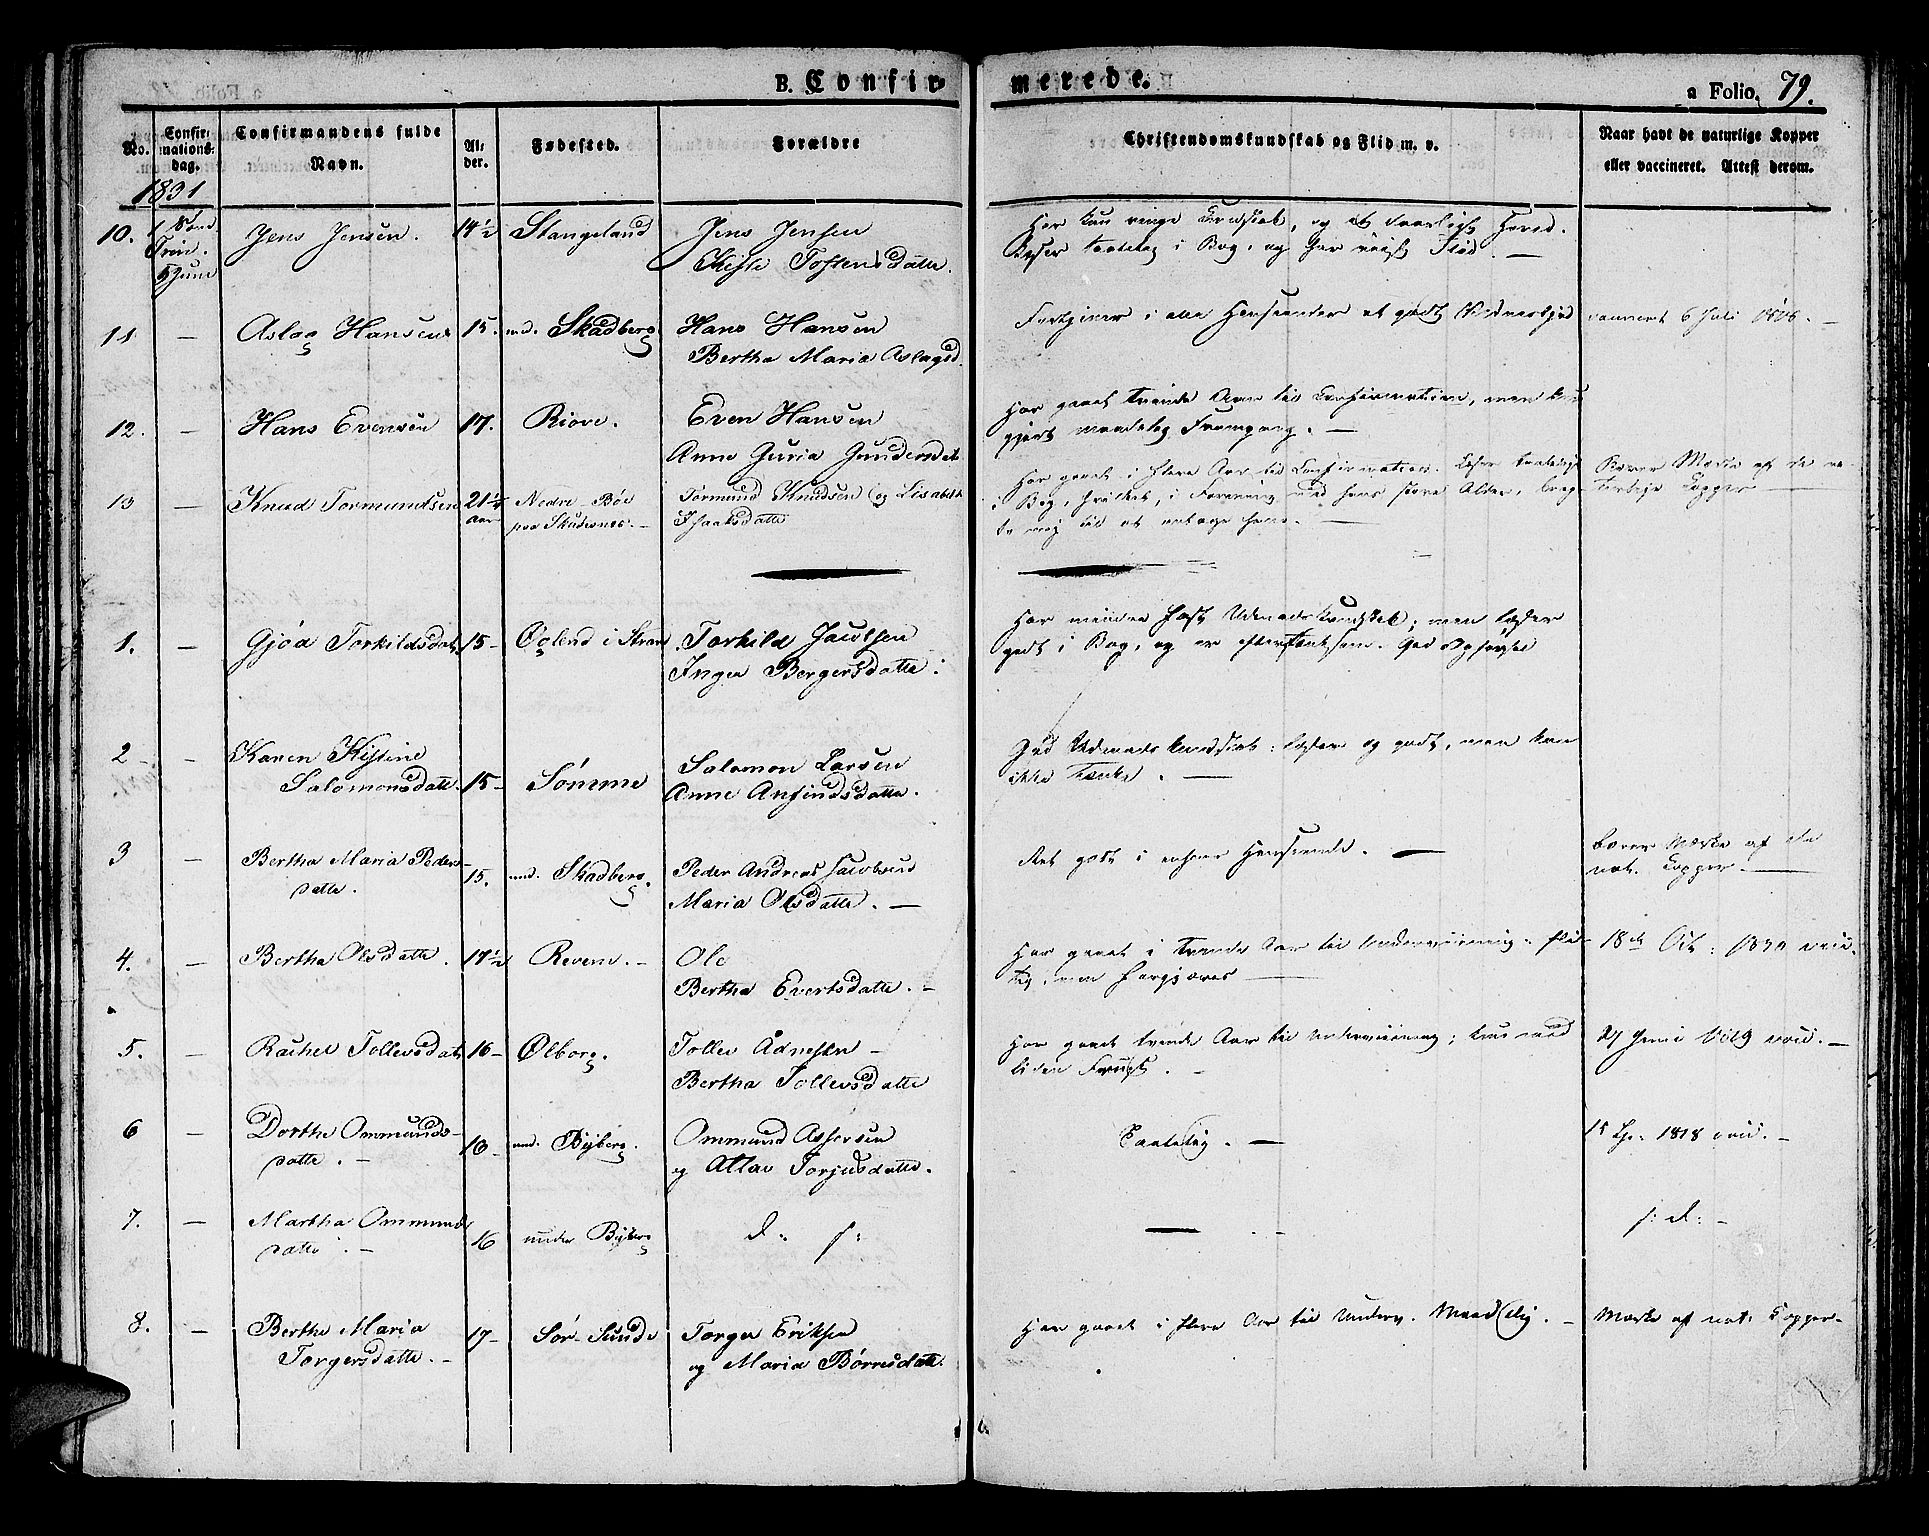 B. Confirmerede.
a Folio. 79.
No. Confirmations-dag. Confirmandens fulde Navn. Alder. Fødested. Forældre Christendomskundskab og Flid m. v. Naar havt de naturlige Kopper eller vaccineret. Attest derom.
1831
10. 1 Sønd Trin. 5 Juni Jens Jensen. 14½ Stangeland Jens Jensen
Tostensdatte.
Har kun ringe Kundskab, og et Hoved.
Læser i Bog, og har Flid. —
11 — Aslag Hansen 15. ned. Skadberg Hans Hansen
Bertha Maria Aslagsd.
i alle Henseender et godt Vidnesbyrd vaccineret 6 Juli —
12. — Hans Evensen 17. Riove. Even Hansen
Anne Guria Gundersdat
Har gaaet trende Aar til Confirmation, men kun
gjort maadelig Fremgang. —
13 — Knud Tormundsen 21¼ aar Nedre Bøe paa Skudesnes. — Tormund Knudsen og Lisabeth
Isaaksdatte
Har gaaet i flere Aar til Confirmation. Læser
i Bog, , i Forening med hans store Alder,
mig til at antage ham. —
Bærer Mærke af de na-
turlige Kopper —
1. — Gjøa Torkildsdat. 15 — Øglend i Stran Torkild Jacobsen
Inger Bergersdatte.
Har mindre fast Udenadskundskab; men læser
godt i Bog, og er eftertænksom. God Opførsel
2 — — Karen Kistine
Salomonsdatt. 15 — Sømme Salomon Larsen
Anne Anfindsdatte.
God Udenadskundskab: læser og godt, men kan
ikke tænke. —
3 — Bertha Maria Peders-
datte. 15. ned. Skadberg. Peder Andreas Jacobsen
Maria Olsdatte. —
Meget godt i enhver Henseende. — bærer Mærke af de
nat. Kopper. —
4. — Bertha Olsdatte. 17½ Revem. — Ole
Bertha Evertsdatte. —
Har gaaet i trende Aar til Underviisning. fli-
tig, men —
18de Oct: 1830 vac.
5. — Rachel Tollevsdat 16 — Ølborg. Tollev Ådnesen —
Bertha Tollevsdatte
Har gaaet trende Aar til Underviisning; kun med
liden Frugt. —
27 Juni 1819 vac. —
6 — Dorthe Ommunds-
datte. — 18 — ned. Byberg. Ommund Assersen
og Atlav Torjusdatte.
Taalelig. — 15 1818 vac. —
7. — Martha Ommund
datte. — 16 under Byberg d: s: — s: d: —
8. — Berthe Maria
Torgersdatte. — 17 — Sør Sunde Torger Eriksen
og Maria Børresdatte.
Har gaaet i flere Aar til Underv. Maadelig. — Mærke af nat: Kopper —